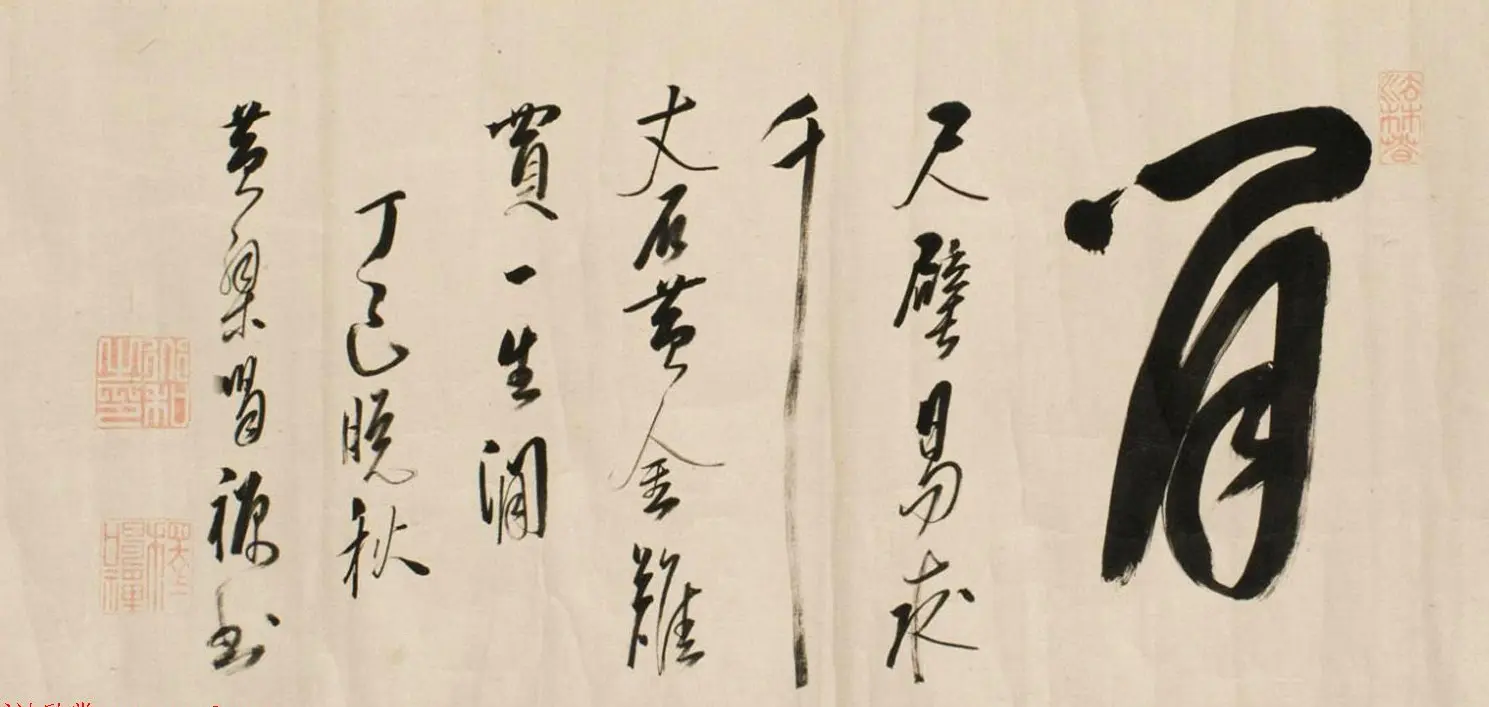 閒
尺璧易求
千
丈石黄金難
買一生閒
丁巳晚秋
黄檗禪書